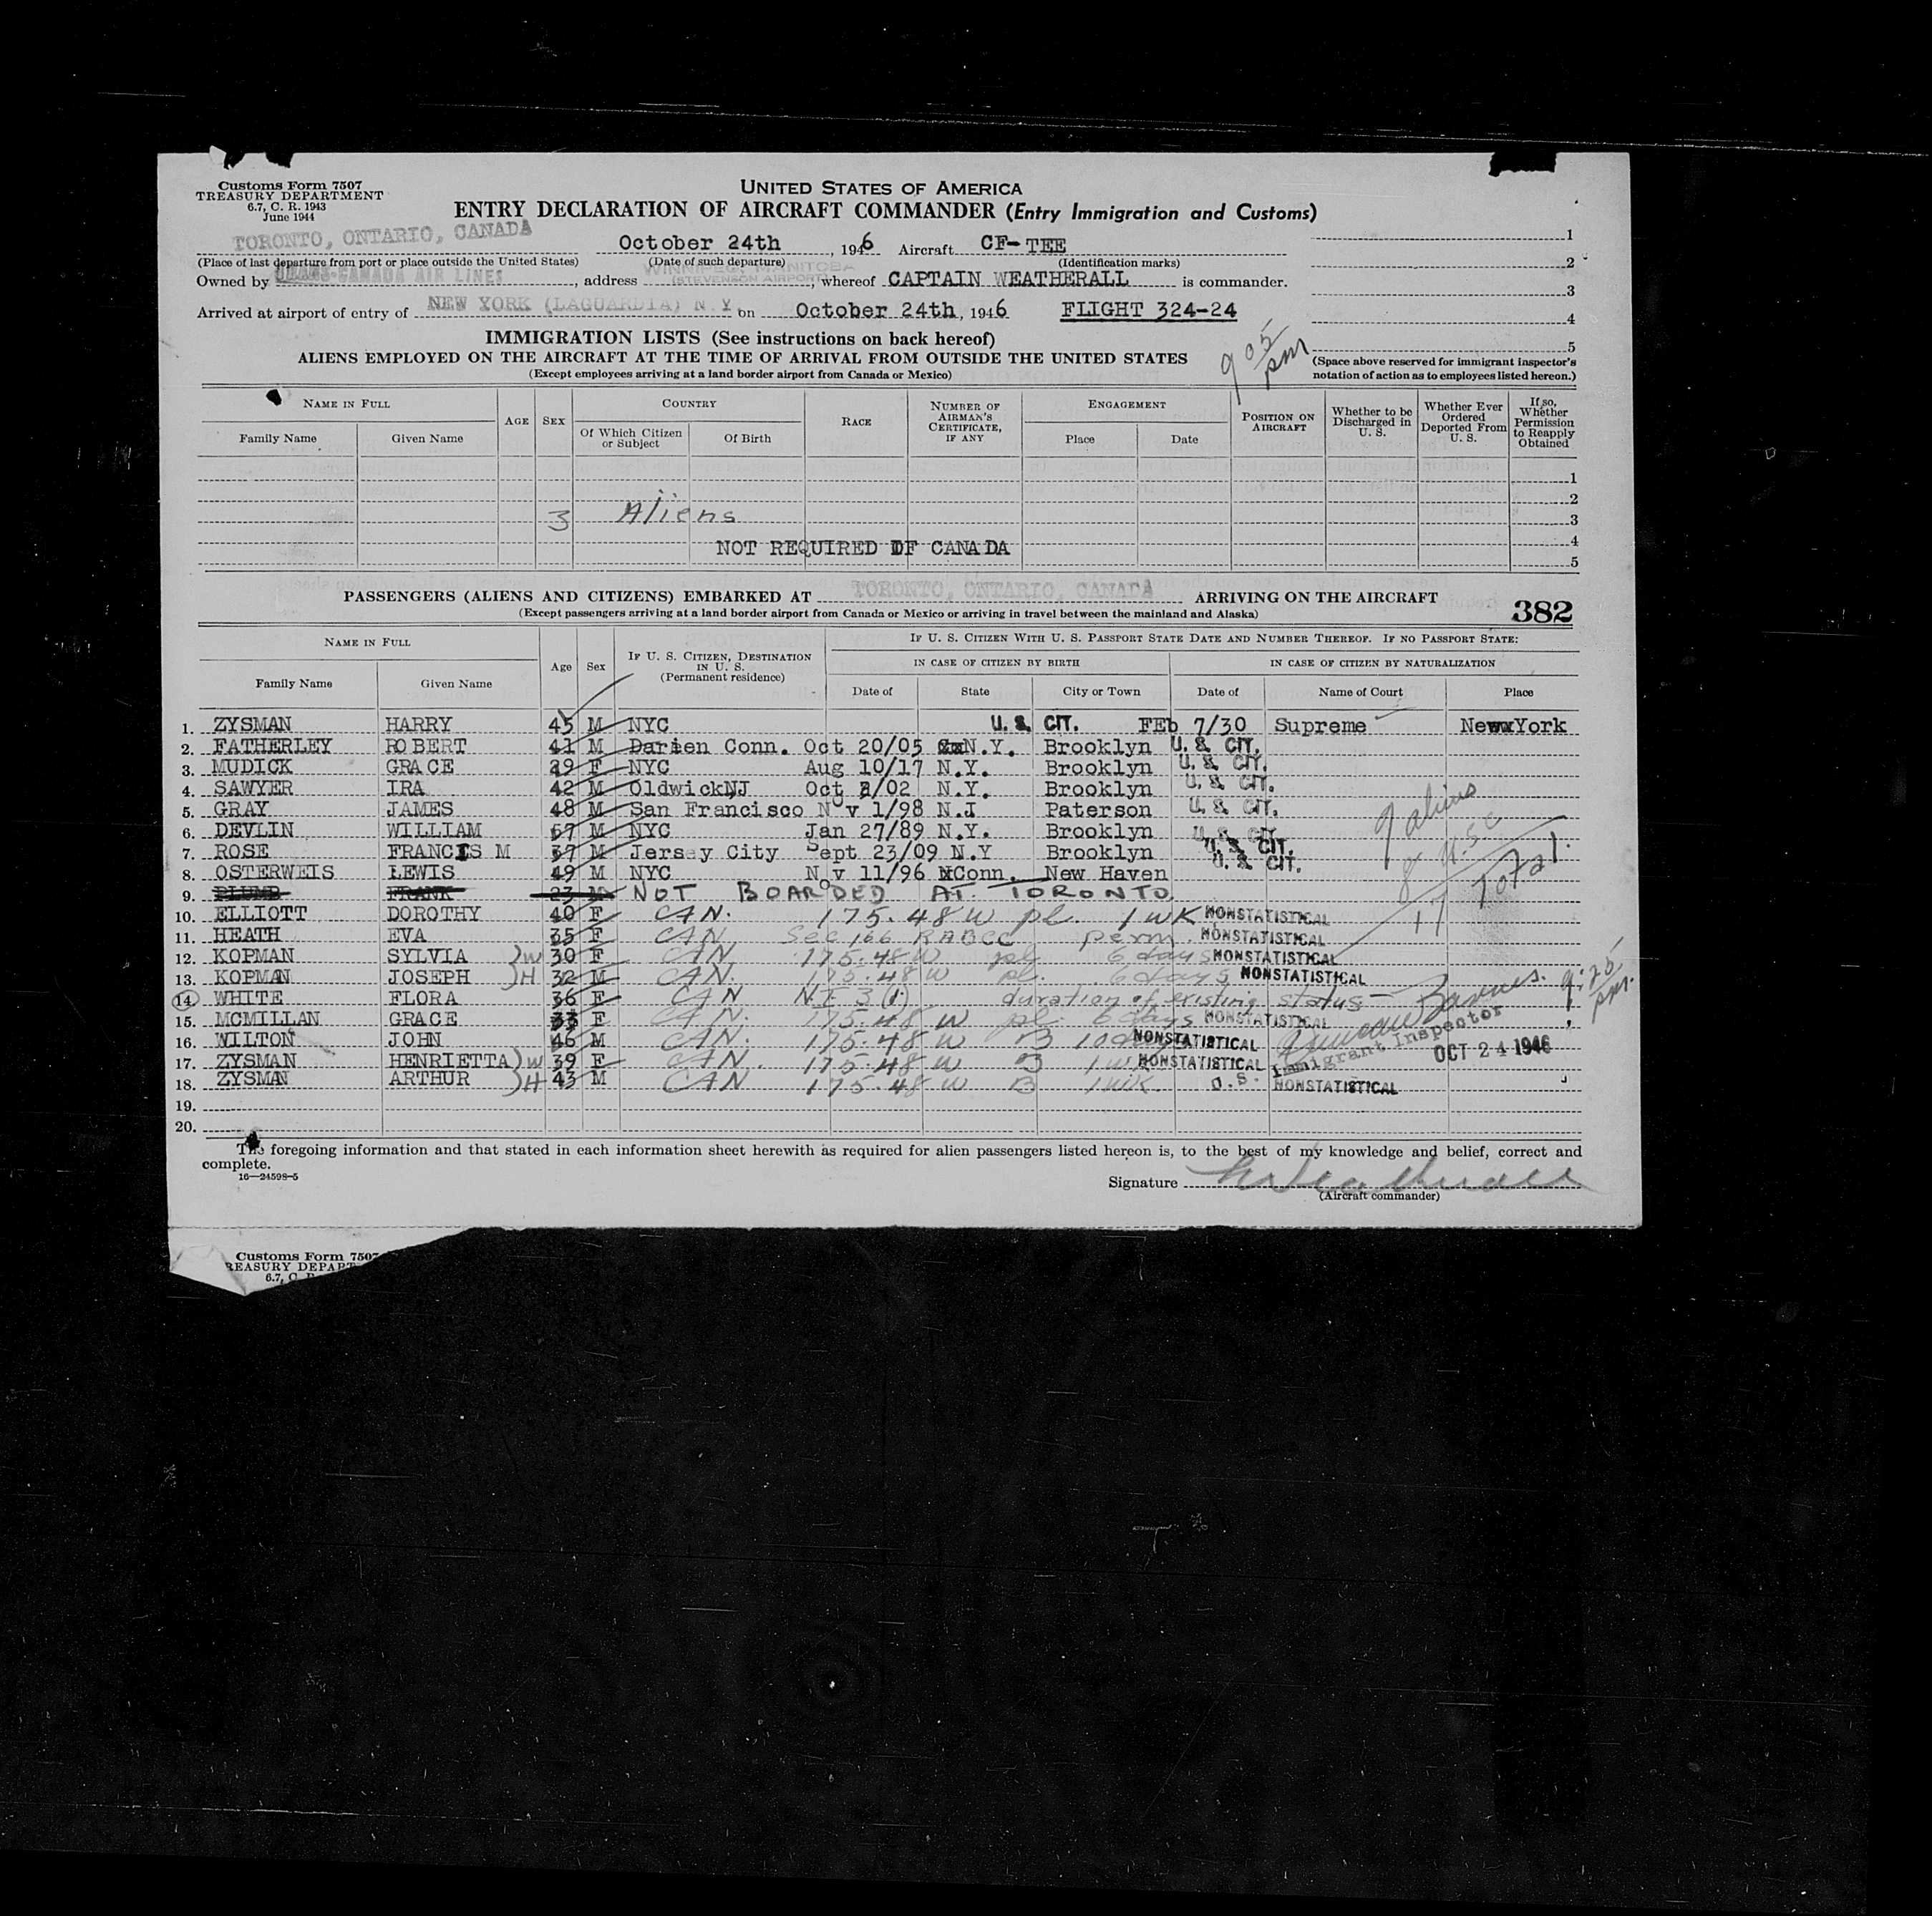 Customs Form 7507
TREASURY DEPARTMENT
6.7, C. R. 1943
June 1944
UNITED STATES OF AMERICA
ENTRY DECLARATION OF AIRCRAFT COMMANDER (Entry Immigration and Customs)
TORONTO, ONTARIO, CANADA October 24th, 1946 Aircraft CF-TEE 1
(Place of last departure from port or place outside the United States) (Date of such departure) (Identification marks) 2
WINNIPEG, MANITOBA
Owned by TRANS-CANADA AIR LINES, address (STEVENSON AIRPORT), whereof CAPTAIN WEATHERALL is commander. 3
Arrived at airport of entry of NEW YORK (LAGUARDIA) N.Y. on October 24th, 1946 FLIGHT 324-24 4
5
IMMIGRATION LISTS (See instructions on back hereof)
ALIENS EMPLOYED ON THE AIRCRAFT AT THE TIME OF ARRIVAL FROM OUTSIDE THE UNITED STATES
(Except employees arriving at a land border airport from Canada or Mexico)
9 05 pm
(Space above reserved for immigrant inspector's
notation of action as to employees listed hereon.)
NAME IN FULL AGE SEX COUNTRY RACE NUMBER OF AIRMAN'S CERTIFICATE, IF ANY ENGAGEMENT POSITION ON AIRCRAFT Whether to be Discharged in U. S. Whether Ever Ordered Deported From U. S. If so, Whether Permission to Reapply Obtained
Family Name Given Name Of Which Citizen or Subject Of Birth Place Date
1
2
3 Aliens 3
NOT REQUIRED OF CANADA 4
5
PASSENGERS (ALIENS AND CITIZENS) EMBARKED AT TORONTO, ONTARIO, CANADA ARRIVING ON THE AIRCRAFT
(Except passengers arriving at a land border airport from Canada or Mexico or arriving in travel between the mainland and Alaska)
382
NAME IN FULL Age Sex IF U. S. CITIZEN, DESTINATION IN U. S. (Permanent residence) IF U. S. CITIZEN WITH U. S. PASSPORT STATE DATE AND NUMBER THEREOF. IF NO PASSPORT STATE:
IN CASE OF CITIZEN BY BIRTH IN CASE OF CITIZEN BY NATURALIZATION
Family Name Given Name Date of State City or Town Date of Name of Court Place
1. ZYSMAN HARRY 45 M NYC U. S. CIT. FEb 7/30 Supreme New York
2. FATHERLEY ROBERT 41 M Darien Conn. Oct 20/05 N.Y. Brooklyn U. S. CIT.
3. MUDICK GRACE 29 F NYC Aug 10/17 N.Y. Brooklyn U. S. CIT.
4. SAWYER IRA 42 M Oldwick NJ Oct /02 N.Y. Brooklyn U. S. CIT.
5. GRAY JAMES 48 M San Francisco Nov 1/98 N.J Paterson U. S. CIT.
6. DEVLIN WILLIAM 57 M NYC Jan 27/89 N.Y. Brooklyn U. S. CIT.
7. ROSE FRANCIS M 37 M Jersey City Sept 23/09 N.Y Brooklyn U. S. CIT.
8. OSTERWEIS LEWIS 49 M NYC Nov 11/96 Conn. New Haven U. S. CIT.
9 aliens
8 U.S.C
17 Total.
9. PLUMB FRANK 23 M NOT BOARDED AT TORONTO
10. ELLIOTT DOROTHY 40 F CAN. 175.48W pl. 1 WK NONSTATISTICAL
11. HEATH EVA 35 F CAN Sec 166 perm. NONSTATISTICAL
12. KOPMAN SYLVIA )W 30 F CAN 175.48W pl 6 days NONSTATISTICAL
13. KOPMAN JOSEPH )H 32 M CAN. 175.48W pl. 6 days NONSTATISTICAL
14. WHITE FLORA 36 F CAN N.E 3(1) duration of existing status
9:25 pm.
15. MCMILLAN GRACE 33 F CAN. 175.48 W pl. 6 days NONSTATISTICAL
16. WILTON JOHN 46 M CAN. 175.48 W B 10 NONSTATISTICAL
Immigrant Inspector
OCT 24 1946
17. ZYSMAN HENRIETTA )W 39 F CAN. 175.48 W B 1 W NONSTATISTICAL
18. ZYSMAN ARTHUR )H 43 M CAN 175.48 W B 1 WK. U.S. NONSTATISTICAL
19.
20.
The foregoing information and that stated in each information sheet herewith as required for alien passengers listed hereon is, to the best of my knowledge and belief, correct and
complete.
16—24598-5
Signature Weatherall
(Aircraft commander)
Customs Form 7507
REASURY DEPART
6.7, C.